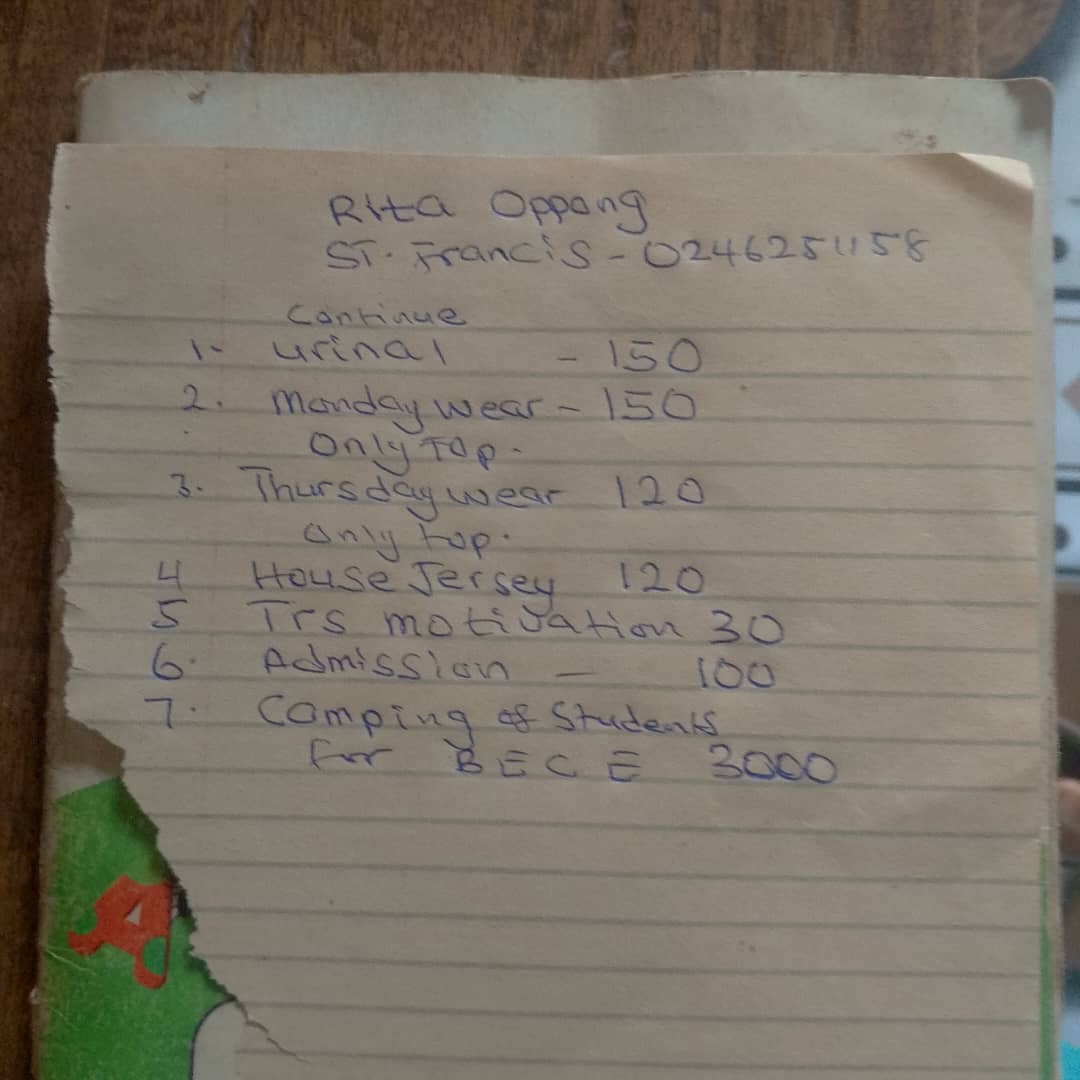 Rita Oppong
ST. Francis - 0246251158
Continue
1- urinal - 150
2. Monday wear - 150
Only Top.
3. Thursday wear 120
Only top.
4 House Jersey 120
5 Trs motivation 30
6. Admission - 100
7. Camping of Students
for BECE 3000